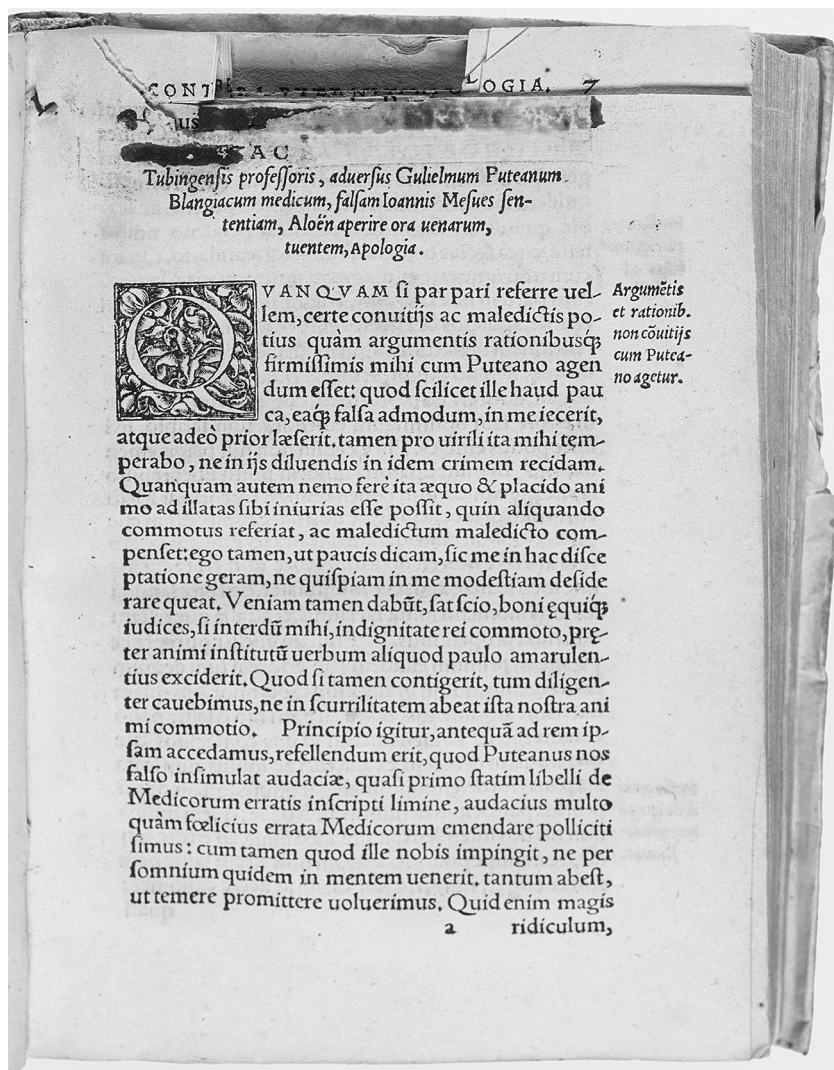 CONT OGIA. 7
US
AC
Tubingensis professoris, aduersus Gulielmum Puteanum
Blangiacum medicum, falsam Ioannis Mesues sen-
tentiam, Aloën aperire ora uenarum,
tuentem, Apologia.
QVANQVAM si par pari referre uel-
lem, certe conuitijs ac maledictis po-
tius quàm argumentis rationibusq́;
firmissimis mihi cum Puteano agen
dum esset: quod scilicet ille haud pau
ca, eaq́; falsa admodum, in me iecerit,
atque adeò prior læserit. tamen pro uirili ita mihi tem-
perabo, ne in ijs diluendis in idem crimem recidam.
Quanquam autem nemo ferè ita æquo & placido ani
mo ad illatas sibi iniurias esse possit, quin aliquando
commotus referiat, ac maledictum maledicto com-
penset: ego tamen, ut paucis dicam, sic me in hac disce
ptatione geram, ne quispiam in me modestiam deside
rare queat. Veniam tamen dabũt, sat scio, boni ęquiq́;
iudices, si interdũ mihi, indignitate rei commoto, prę-
ter animi institutũ uerbum aliquod paulo amarulen-
tius exciderit. Quod si tamen contigerit, tum diligen-
ter cauebimus, ne in scurrilitatem abeat ista nostra ani
mi commotio. Principio igitur, antequã ad rem ip-
sam accedamus, refellendum erit, quod Puteanus nos
falso insimulat audaciæ, quasi primo statim libelli de
Medicorum erratis inscripti limine, audacius multo
quàm fœlicius errata Medicorum emendare polliciti
simus: cum tamen quod ille nobis impingit, ne per
somnium quidem in mentem uenerit. tantum abest,
ut temere promittere uoluerimus. Quid enim magis
a ridiculum,
Argumẽtis
et rationib.
non cõuitijs
cum Putea-
no agetur.